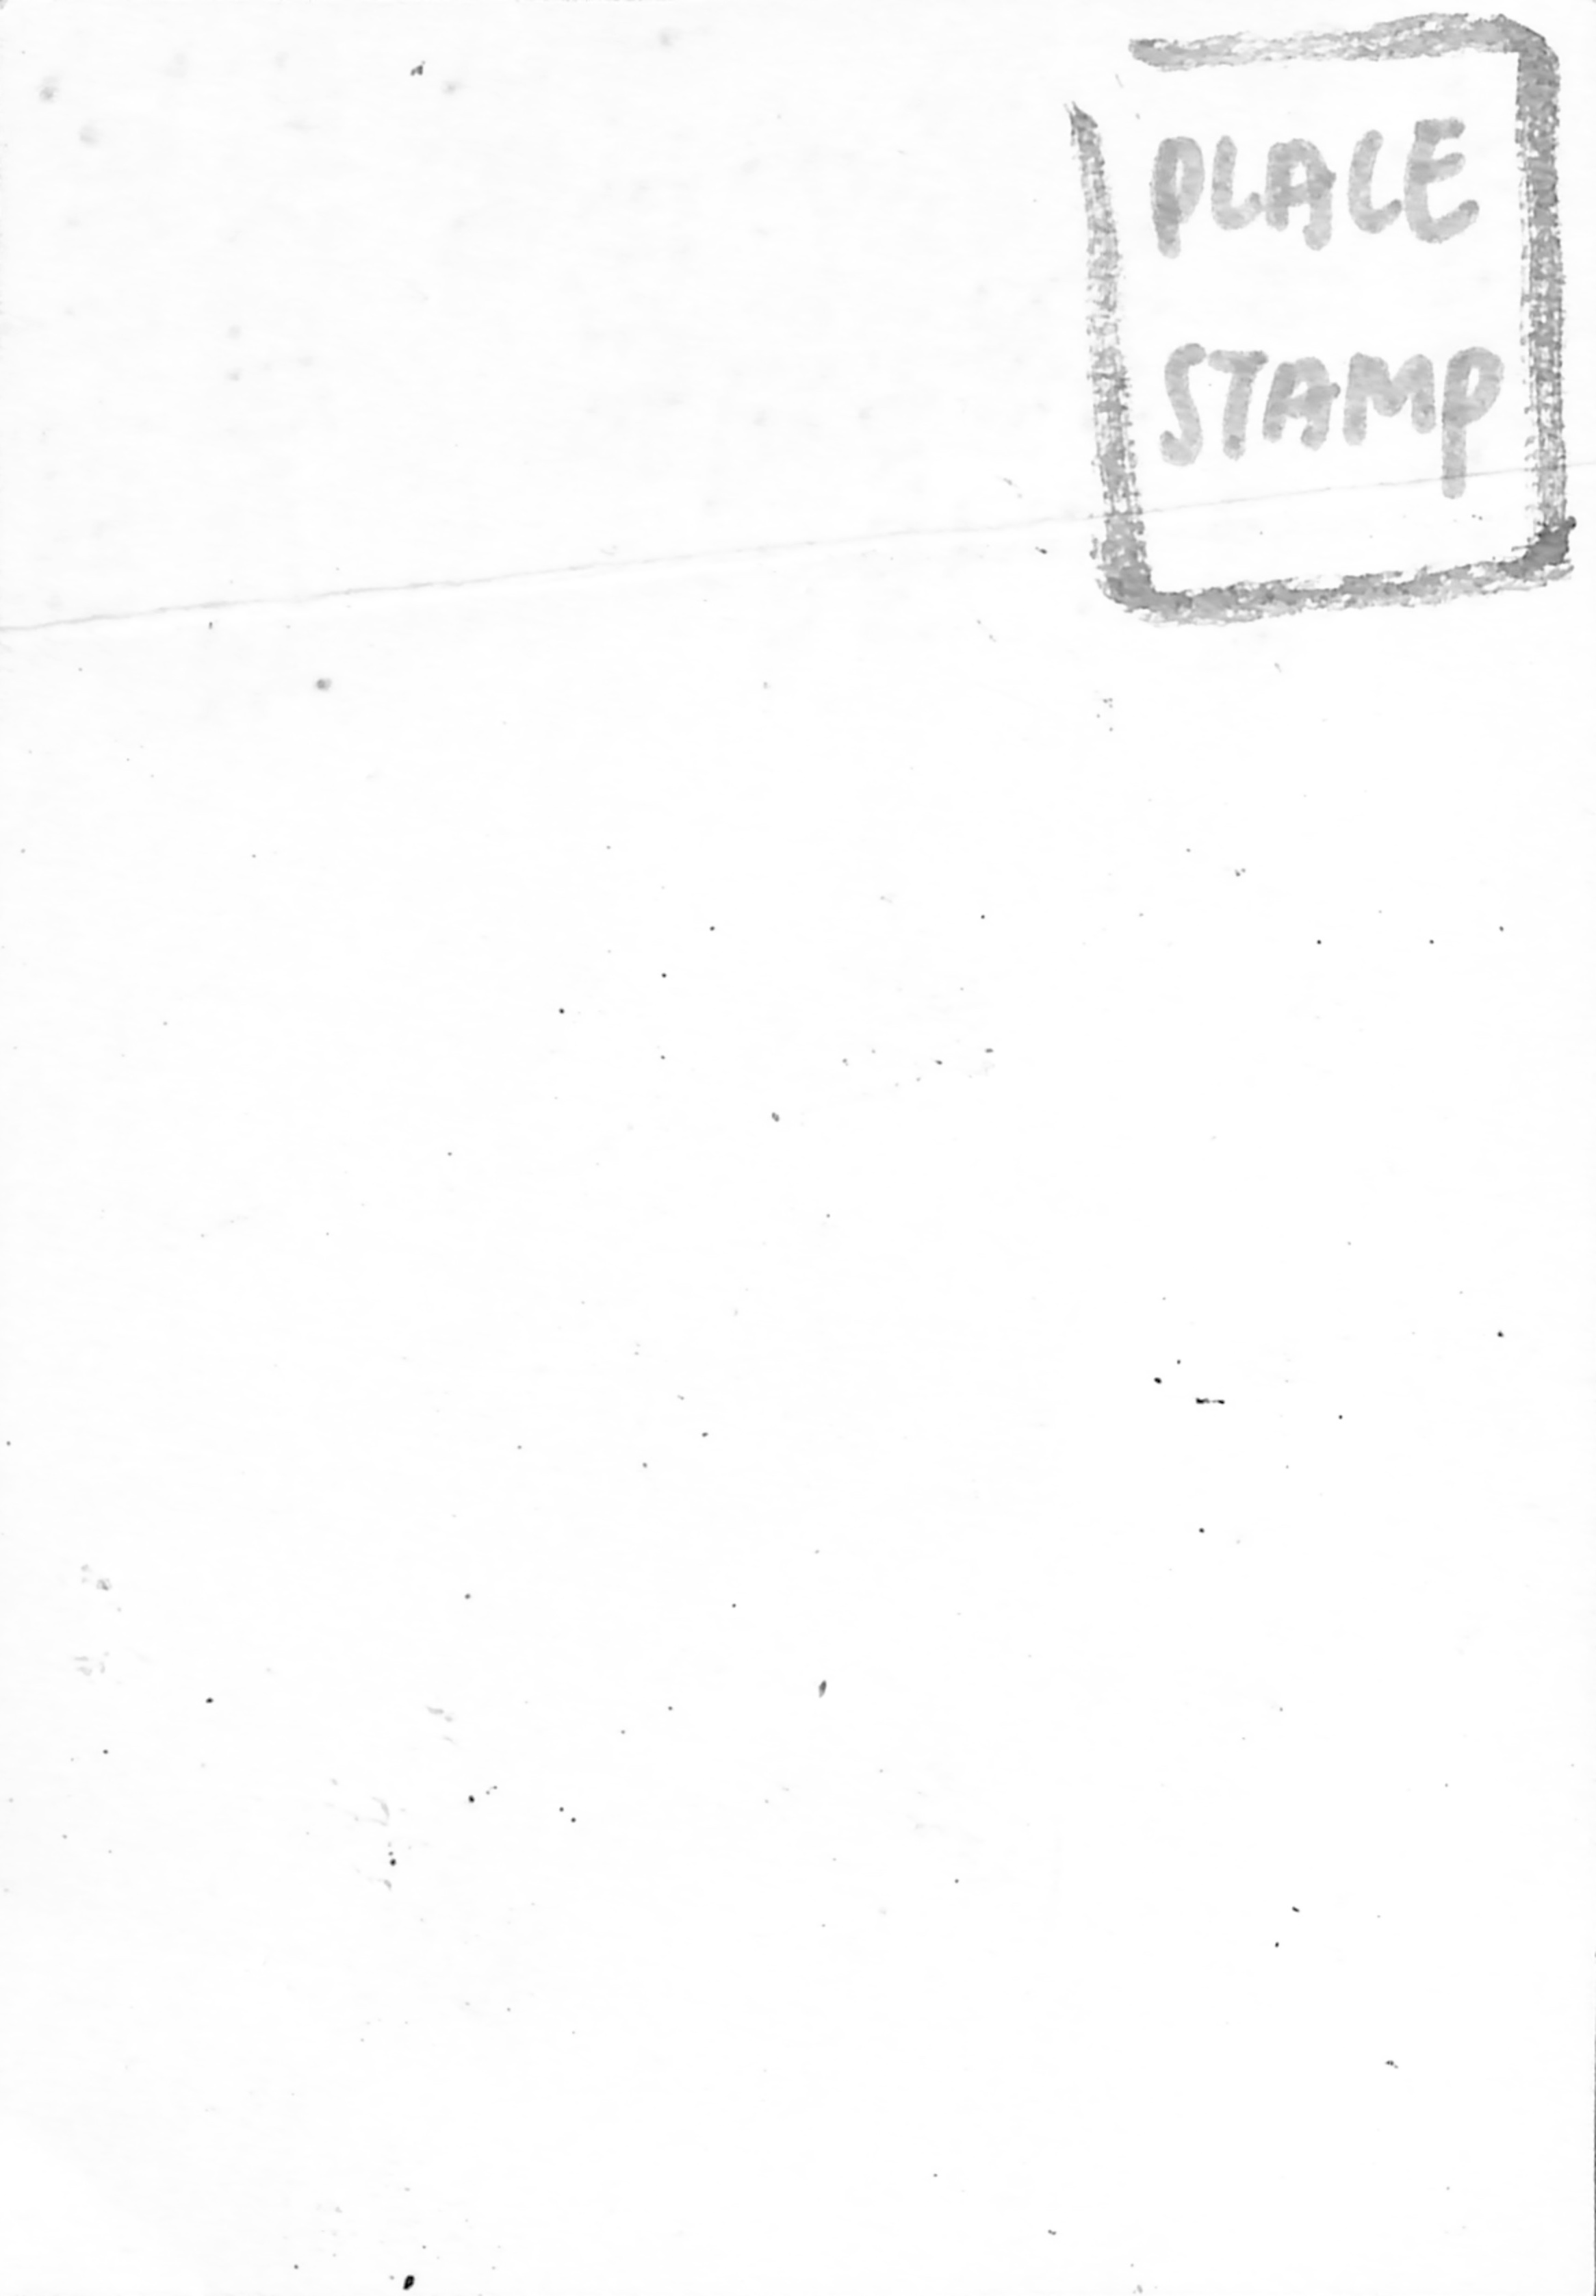 PLACE
STAMP